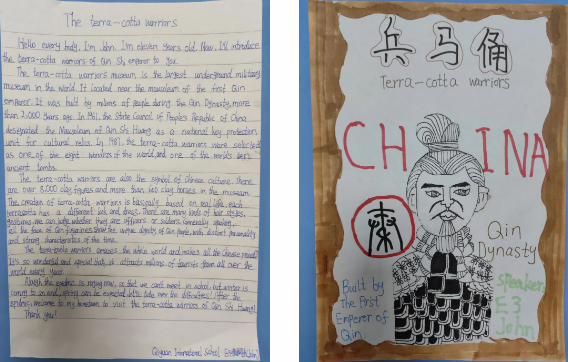 The terra-cotta warriors
Hello every body. I'm John. I'm eleven years old. Now, I'll introduce
the terra-cotta warriors of Qin Shi emperor to you.
The terra-cotta warriors museum is the largest underground military
museum in the world. It located near the mausoleum of the first Qin
emperor. It was built by millions of people during the Qin Dynasty, more
than 2,000 years ago. In 1961, the State Council of People's Republic of China
designated the Mausoleum of Qin Shi Huang as a national key protection
unit for cultural relics. In 1987, the terra-cotta warriors were selected
as one of the eight wonders of the world, and one of the world's
ancient tombs.
The terra-cotta warriors are also the symbol of Chinese culture. There
are over 8,000 clay figures and more than clay horses in the museum.
The creation of terra-cotta warriors is basically based on real life, each
terracotta has a different look and dress. There are many kinds of hair styles,
gestures, we can judge whether they are officers or soldiers.
all the face of Qin figurines show the unique dignity of Qin people, with distinct personality
and strong characteristics of the time.
The terra-cotta warriors amazes the whole world and makes all the Chinese proud.
It's so wonderful and special that it attracts millions of tourists from all over the
world every year.
the epidemic is raging now, so that we can't meet in school, but winter is
coming to an end, spring can be expected. Let's tide over the difficulties! After the
epidemic, welcome to my hometown to visit the terra-cotta warriors of Qin Shi Huang!
Thank you!
International School John
兵马俑
Terra-cotta warriors
CHINA
秦
Qin
Dynasty
Built by
The First
Emperor of
Qin.
Speaker
E3
John